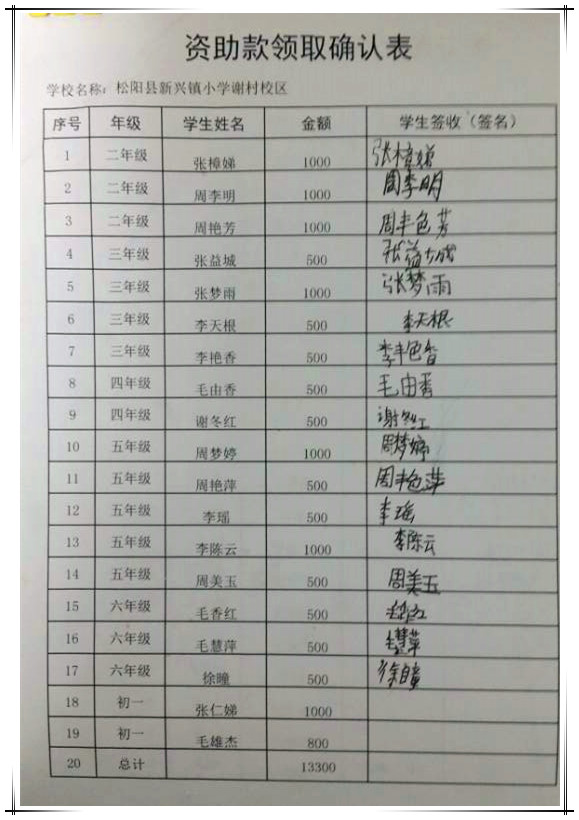 资助款领取确认表
学校名称：松阳县新兴镇小学谢村校区
序号 年级 学生姓名 金额 学生签收（签名）
1 二年级 张樟娣 1000 张樟娣
2 二年级 周李明 1000 周李明
3 二年级 周艳芳 1000 周艳芳
4 三年级 张益城 500 张益城
5 三年级 张梦雨 1000 张梦雨
6 三年级 李天根 500 李天根
7 三年级 李艳香 500 李艳香
8 四年级 毛由香 500 毛由香
9 四年级 谢冬红 500 谢冬红
10 五年级 周梦婷 1000 周梦婷
11 五年级 周艳萍 500 周艳萍
12 五年级 李瑶 500 李瑶
13 五年级 李陈云 1000 李陈云
14 五年级 周美玉 500 周美玉
15 六年级 毛香红 500 毛香红
16 六年级 毛慧萍 500 毛慧萍
17 六年级 徐曈 500 徐曈
18 初一 张仁娣 1000
19 初一 毛雄杰 800
20 总计 13300